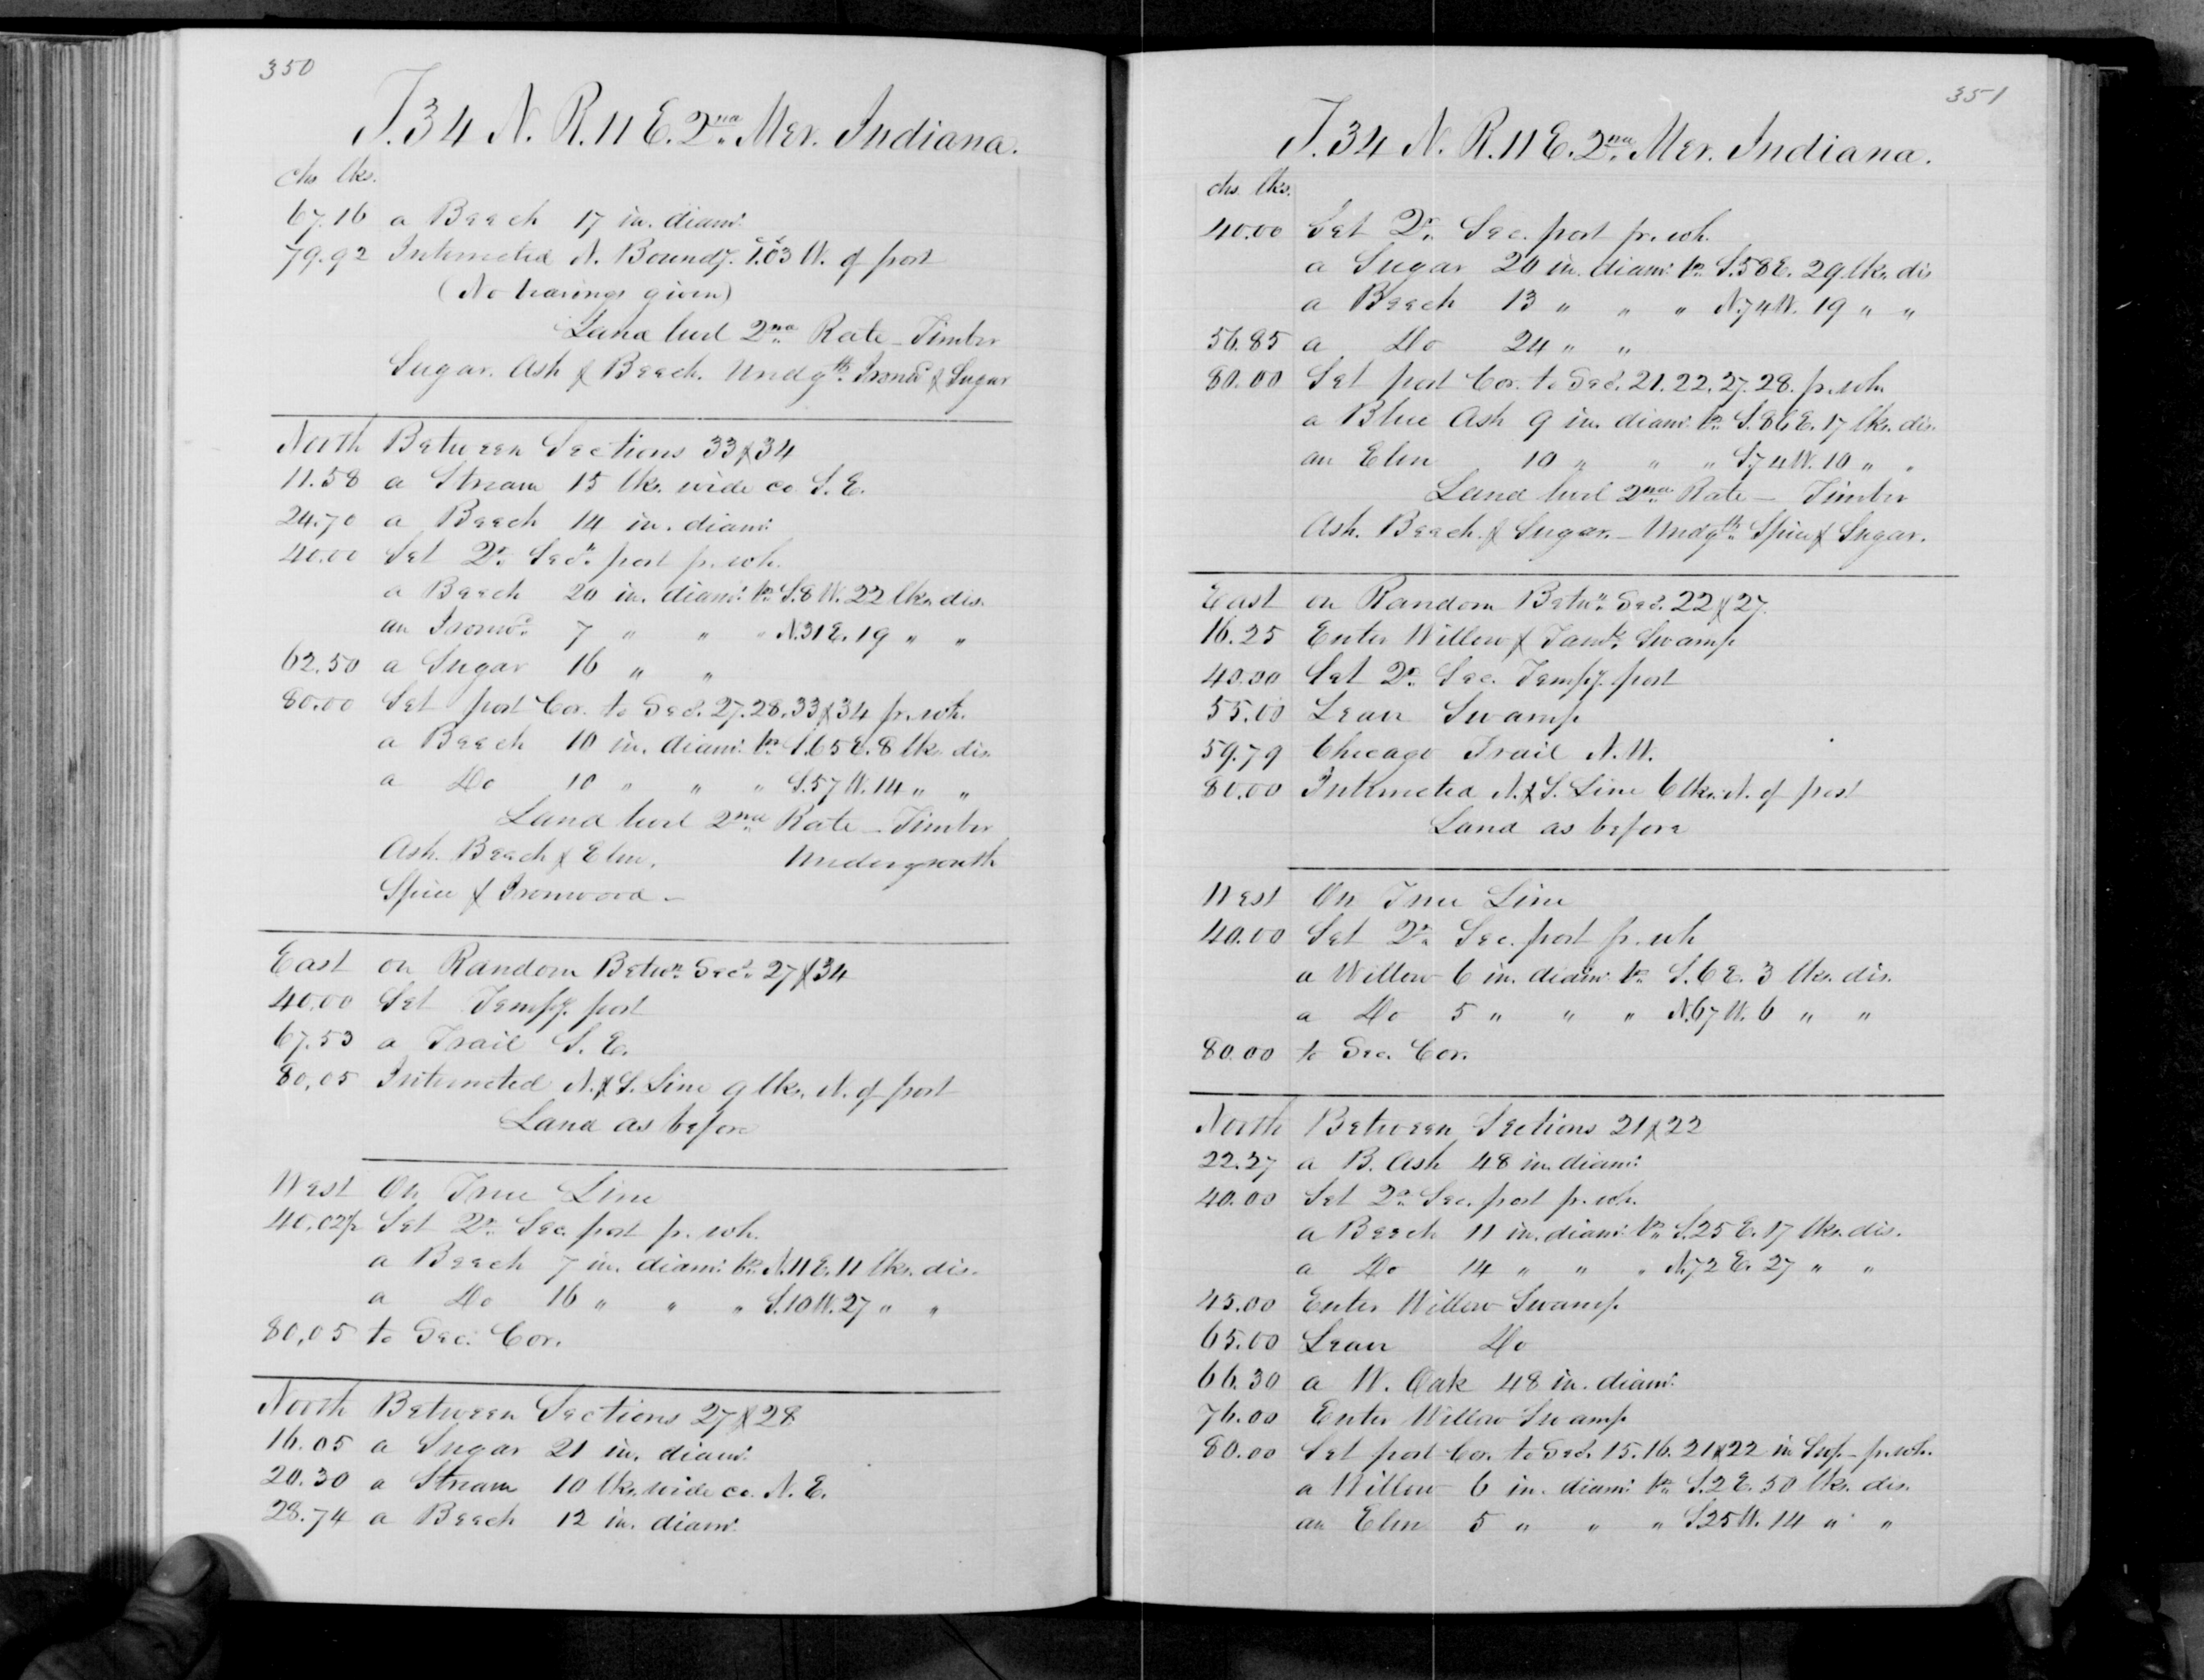 350
T. 34 N. R. 11 E. 2nd Mer. Indiana.
chs lks.
67.16 a Beech 17 in. diam:
79.92 Intersected N. Boundy. 1.03 W. of post
(No bearings given)
Land level 2nd Rate - Timber
Sugar. Ash & Beech. Undgth. Ironwd. & Sugar
North Between Sections 33 & 34
11.58 a Stream 15 lks. wide co. S. E.
24.70 a Beech 14 in. diam:
40.00 Set Qr. Secn. post fr. wh.
a Beech 20 in. diam: br. S. 8 W. 22 lks. dis.
an Ironwd. 7 " " " N. 31 E. 19 " "
62.50 a Sugar 16 " "
80.00 Set post Cor. to Secs. 27. 28. 33 & 34 fr. wh.
a Beech 10 in. diam: br. S. 65 E. 8 lks. dis.
a Do 10 " " " S. 57 W. 14 " "
Land level 2nd Rate - Timber
Ash. Beech & Elm. Undergrowth
Spice & Ironwood -
East on Random Betwn. Secs. 27 & 34
40.00 Set Tempy. post
67.53 a Trail S. E.
80.05 Intersected N. & S. Line 9 lks. N. of post
Land as before
West On True Line
40.02½ Set Qr. Sec. post fr. wh.
a Beech 7 in. diam: br. N. 11 E. 11 lks. dis.
a Do 16 " " " S. 10 W. 27 " "
80.05 to Sec. Cor.
North Between Sections 27 & 28
16.05 a Sugar 21 in. diam:
20.30 a Stream 10 lks. wide co. N. E.
28.74 a Beech 12 in. diam:
351
T. 34 N. R. 11 E. 2nd Mer. Indiana.
chs. lks.
40.00 Set Qr. Sec. post fr. wh.
a Sugar 20 in. diam: br. S. 58 E. 29 lks. dis
a Beech 13 " " " N. 74 W. 19 " "
56.85 a Do 24 " "
80.00 Set post Cor. to Secs. 21. 22. 27. 28. fr. wh.
a Blue Ash 9 in. diam: br. S. 86 E. 17 lks. dis.
an Elm 10 " " " S. 74 W. 10 " "
Land level 2nd Rate - Timber
Ash. Beech & Sugar. - Undgth. Spice & Sugar.
East on Random Betwn. Secs. 22 & 27.
16.25 Enter Willow & Tamk. Swamp
40.00 Set Qr. Sec. Tempy. post
55.00 Leave Swamp
59.79 Chicago Trail N. W.
80.00 Intersected N. & S. Line 6 lks. N. of post
Land as before
West On True Line
40.00 Set Qr. Sec. post fr. wh
a Willow 6 in. diam: br. S. 6 E. 3 lks. dis.
a Do 5 " " " N. 67 W. 6 " "
80.00 to Sec. Cor.
North Between Sections 21 & 22
22.27 a B. Ash 48 in. diam:
40.00 Set Qr. Sec. post fr. wh.
a Beech 11 in. diam: br. S. 25 E. 17 lks. dis.
a Do 14 " " " N. 72 E. 27 " "
45.00 Enter Willow Swamp
65.00 Leave Do
66.30 a W. Oak 48 in. diam:
76.00 Enter Willow Swamp
80.00 Set post Cor. to Secs. 15. 16. 21 & 22 in Swp - fr. wh.
a Willow 6 in. diam: br. S. 2 E. 50 lks. dis.
an Elm 5 " " " S. 25 W. 14 " "